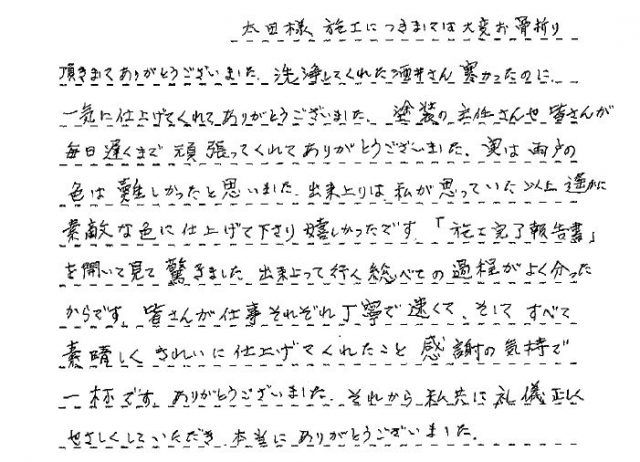 太田様 施工につきましては大変お骨折り
頂きましてありがとうございました。洗浄してくれた酒井さん 寒かったのに、
一気に仕上げてくれてありがとうございました。塗装の主任さんや皆さんが
毎日遅くまで頑張ってくれてありがとうございました。実は雨戸の
色は難しかったと思いました。出来上りは私が思っていた以上遥かに
素敵な色に仕上げて下さり嬉しかったです。「施工完了報告書」
を開いて見て驚きました。出来上って行く総べての過程がよく分った
からです。皆さんが仕事それぞれ丁寧で速くて、そして すべて
素晴しく きれいに仕上げてくれたこと 感謝の気持で
一杯です。ありがとうございました。それから 私共に礼儀正しく
やさしくしていただき 本当にありがとうございました。